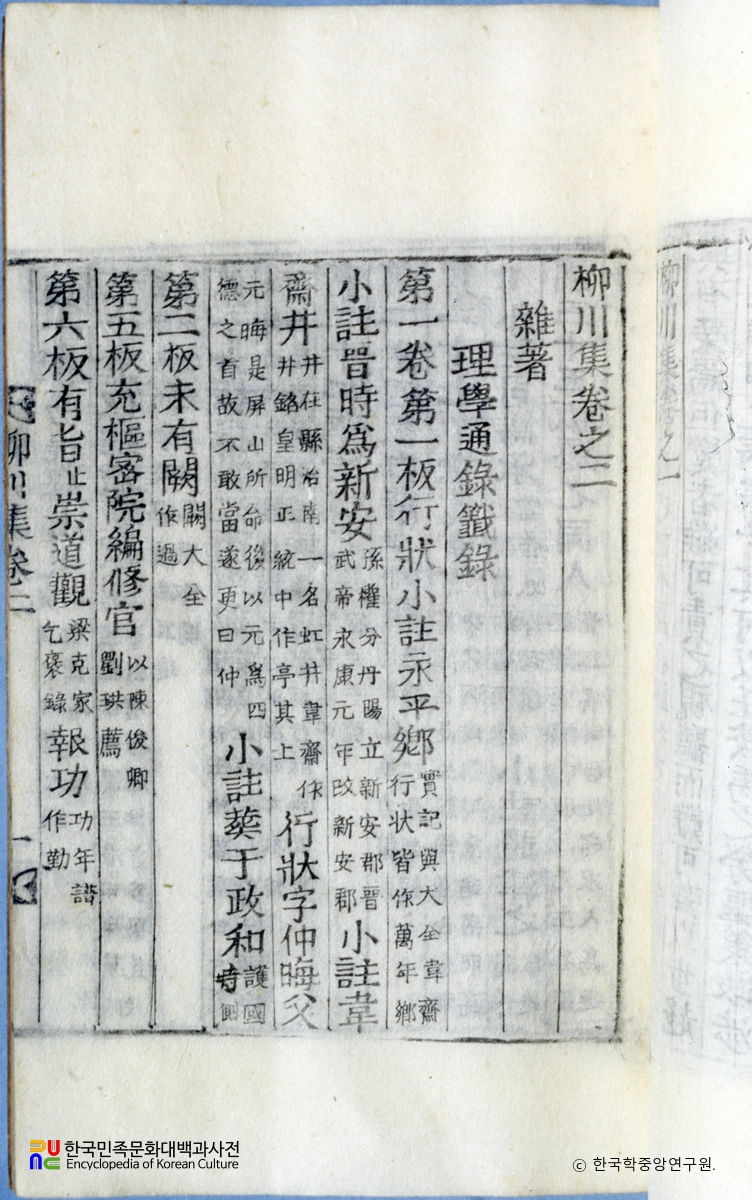 柳川集卷之二
雜著
理學通錄籤錄
第一卷第一板行狀小註永平鄉實記與大全韋齋行狀皆作萬年鄉
小註晉時爲新安孫權分丹陽立新安郡晉武帝永康元年改新安郡小註韋
齋井井在縣治南一名虹井韋齋作井銘皇明正統中作亭其上行狀字仲晦父
元晦是屏山所命後以元爲四德之首故不敢當遂更曰仲小註葬于政和護國時側
第二板未有闕闕大全作過
第五板充樞密院編修官以陳俊卿劉珙薦
第六板有旨止崇道觀梁克家乞褒錄報功功年譜作勤
柳川集卷二
一
한국민족문화대백과사전
Encyclopedia of Korean Culture
© 한국학중앙연구원.